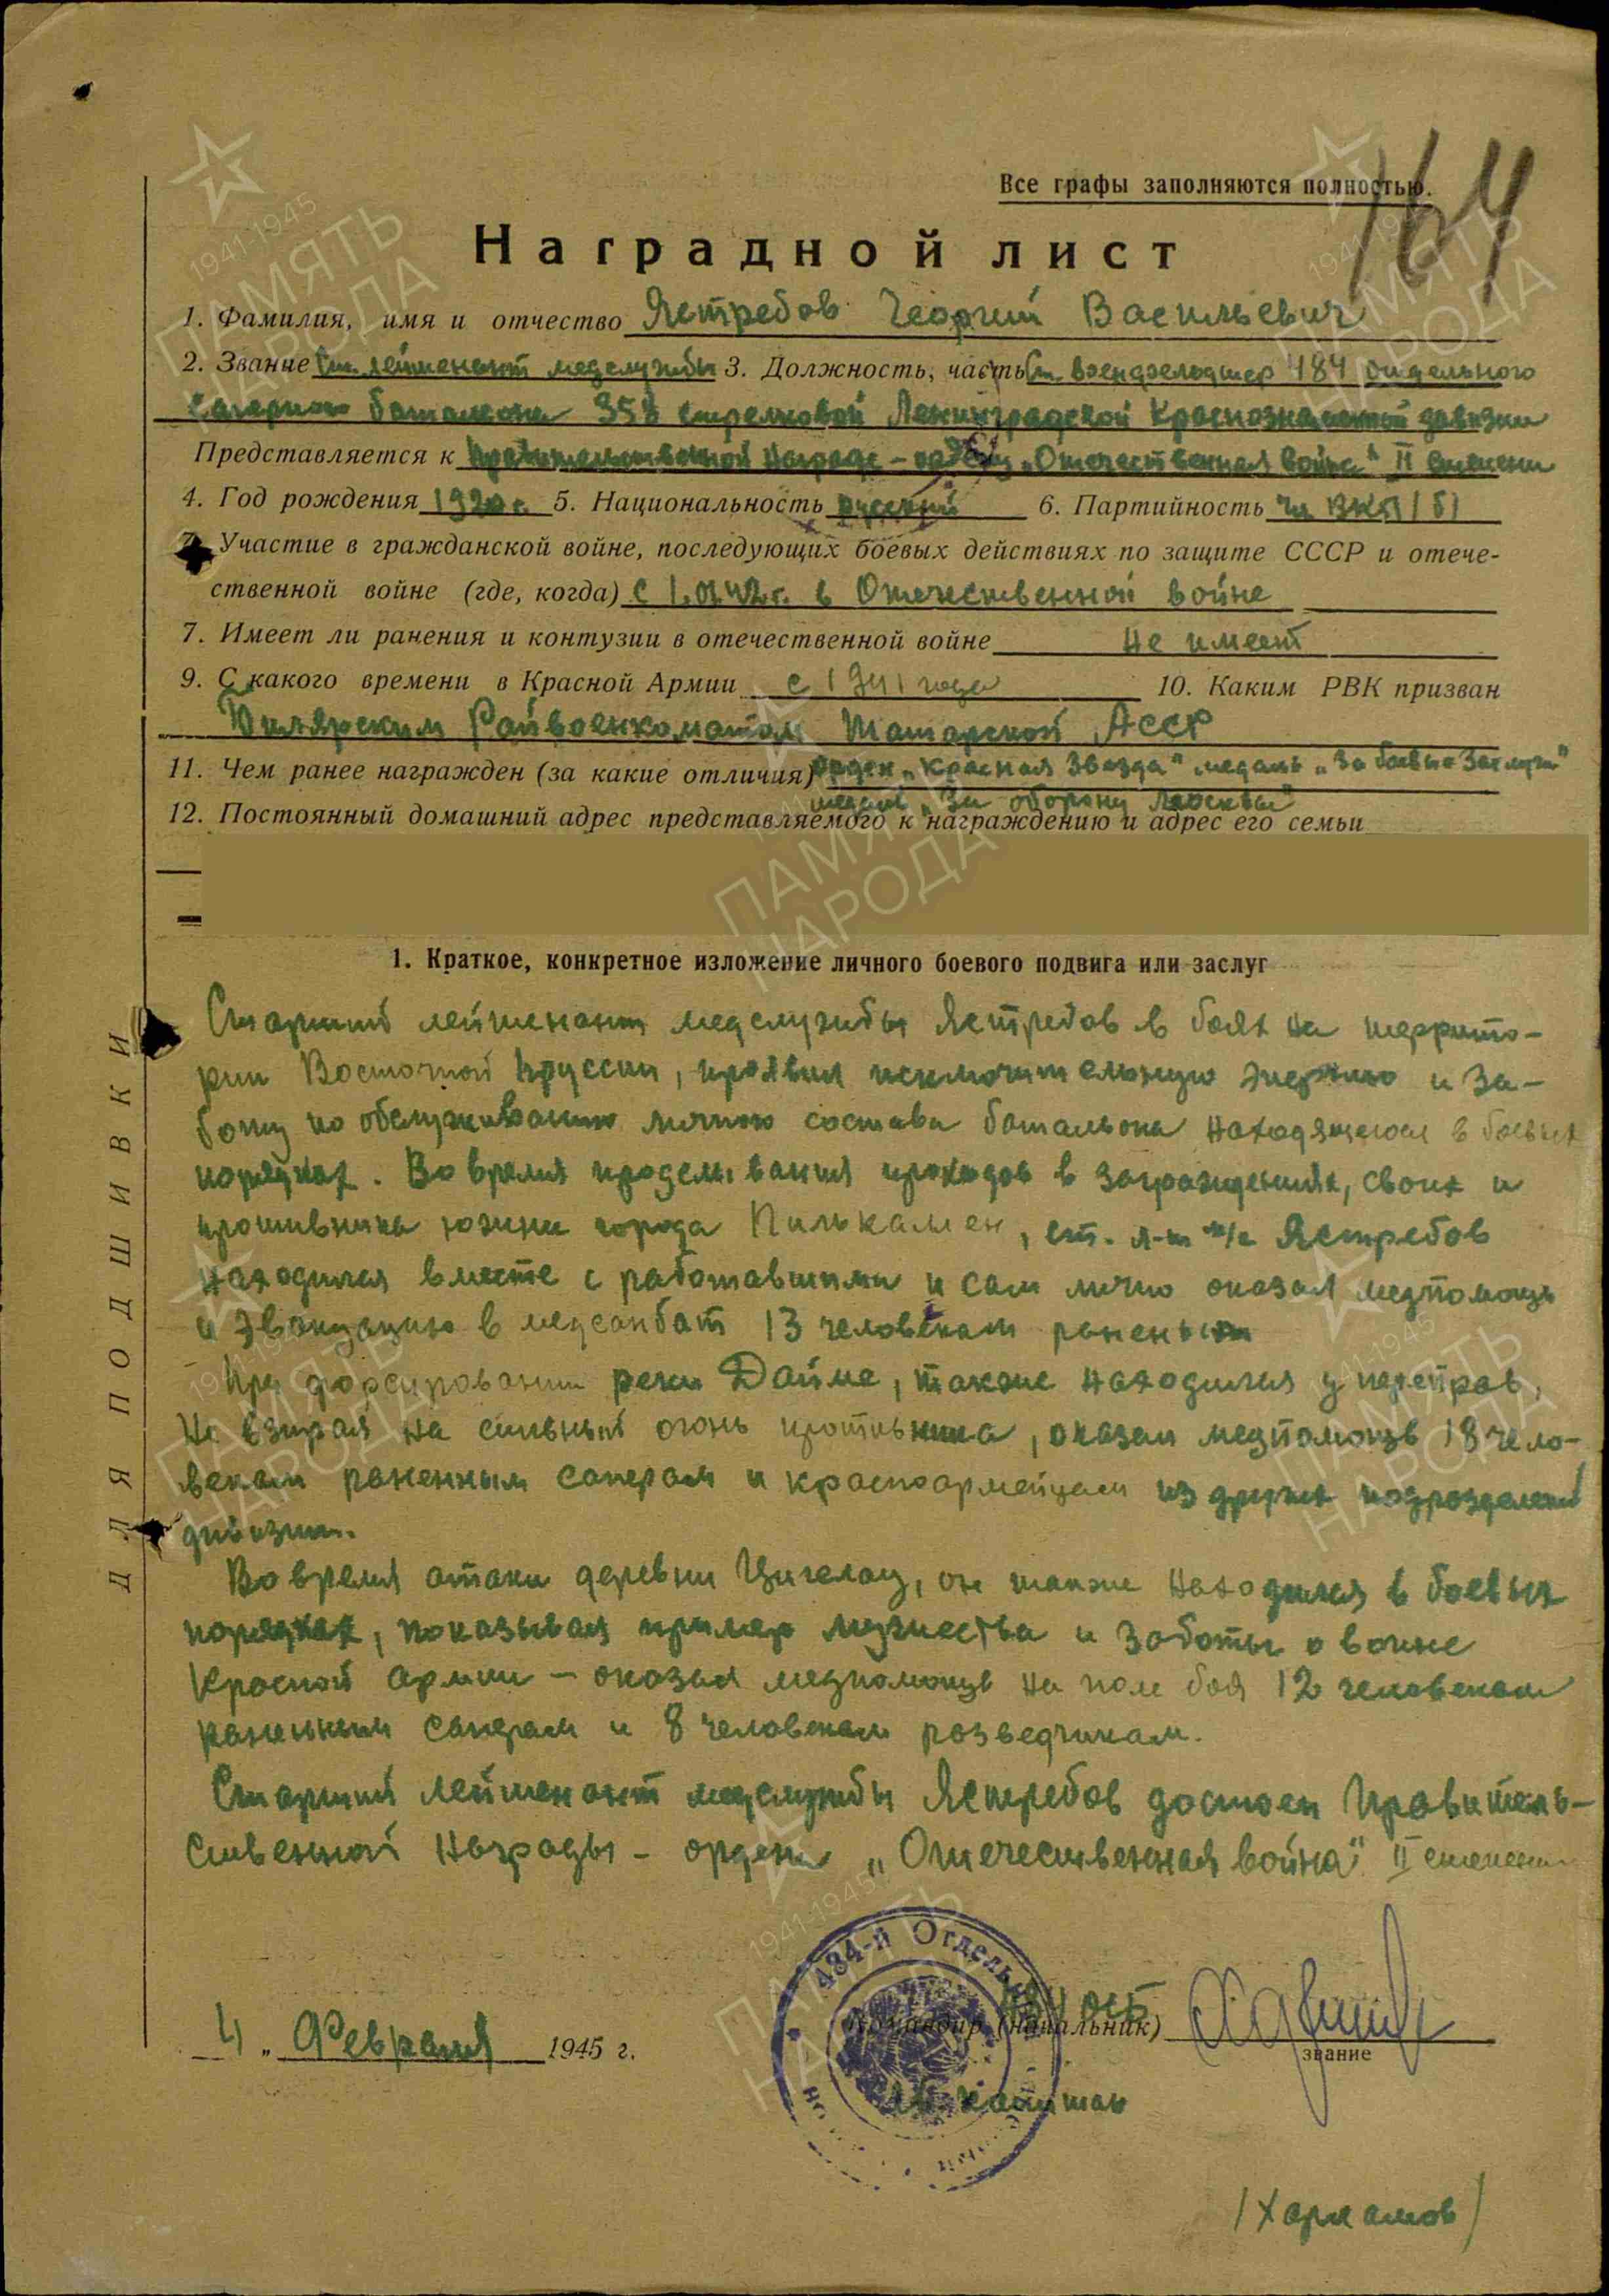 Все графы заполняются полностью.
164
Наградной лист
1. Фамилия, имя и отчество Ястребов Георгий Васильевич
2. Звание Ст. лейтенант медслужбы 3. Должность, часть Ст. военфельдшер 484 отдельного
саперного батальона 358 стрелковой Ленинградской Краснознаменной дивизии
Представляется к Правительственной награде – ордену „Отечественная война" II степени
4. Год рождения 1920 г. 5. Национальность русский 6. Партийность Чл. ВКП/б/
7. Участие в гражданской войне, последующих боевых действиях по защите СССР и отече-
ственной войне (где, когда) с в Отечественной войне
7. Имеет ли ранения и контузии в отечественной войне не имеет
9. С какого времени в Красной Армии с 1941 года 10. Каким РВК призван
Райвоенкоматом Татарской АССР
11. Чем ранее награжден (за какие отличия) орден „Красная Звезда" медаль „За боевые Заслуги"
медаль „За оборону Москвы"
12. Постоянный домашний адрес представляемого к награждению и адрес его семьи
1. Краткое, конкретное изложение личного боевого подвига или заслуг
Старший лейтенант медслужбы Ястребов в боях на террито-
рии Восточной Пруссии, проявил исключительную энергию и за-
боту по обслуживанию личного состава батальона находящегося в боевых
порядках. Во время проделывания проходов в заграждениях, своих и
противника южнее города Пилькален, ст. л-т м/с Ястребов
находился вместе с работавшими и сам лично оказал медпомощь
и эвакуацию в медсанбат 13 человекам раненым
При форсировании реки Дайме, также находился у переправ,
Не взирая на сильный огонь противника, оказал медпомощь 18 чело-
векам раненным саперам и красноармейцам из других подразделений
дивизии.
Во время атаки деревни Цигелау, он также находился в боевых
порядках, показывая пример мужества и заботы о воине
Красной армии – оказал медпомощь на поле боя 12 человекам
раненным саперам и 8 человекам розведчикам.
Старший лейтенант медслужбы Ястребов достоен Правитель-
ственной награды – ордена „Отечественная война" II степени
484-й Отдельный
Командир (начальник) 484 ОСБ
звание
4 „ Февраля 1945 г.
капитан
/Харламов/
ДЛЯ ПОДШИВКИ
1941-1945
ПАМЯТЬ
НАРОДА